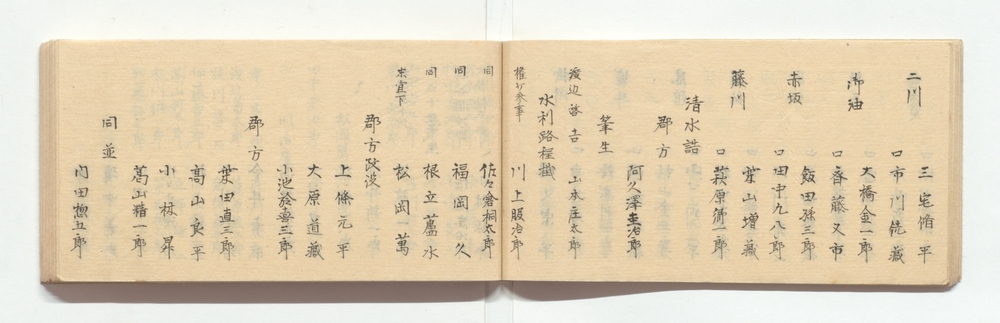 二川 口 三宅脩平
口 市川銑藏
御油 大橋金一郎
口 香藤又市
赤坂 飯田孫三郎
口 田中九八郎
藤川 葉山增藏
口 萩原彌一郎
清水誥
郡方
阿久澤圭治郎
筆生
渡辺啓吉 山本庄太郎
水利路程掛
權少参事 川上服治郎
同 佐々倉桐太郎
同 福岡久
同 根立蘆水
未宣下 松岡萬
郡方改役
上條元平
大原道藏
小池於喜三郎
郡方
葉田直三郎
高山良平
小林昇
萬山精一郎
同並
内田惣五郎